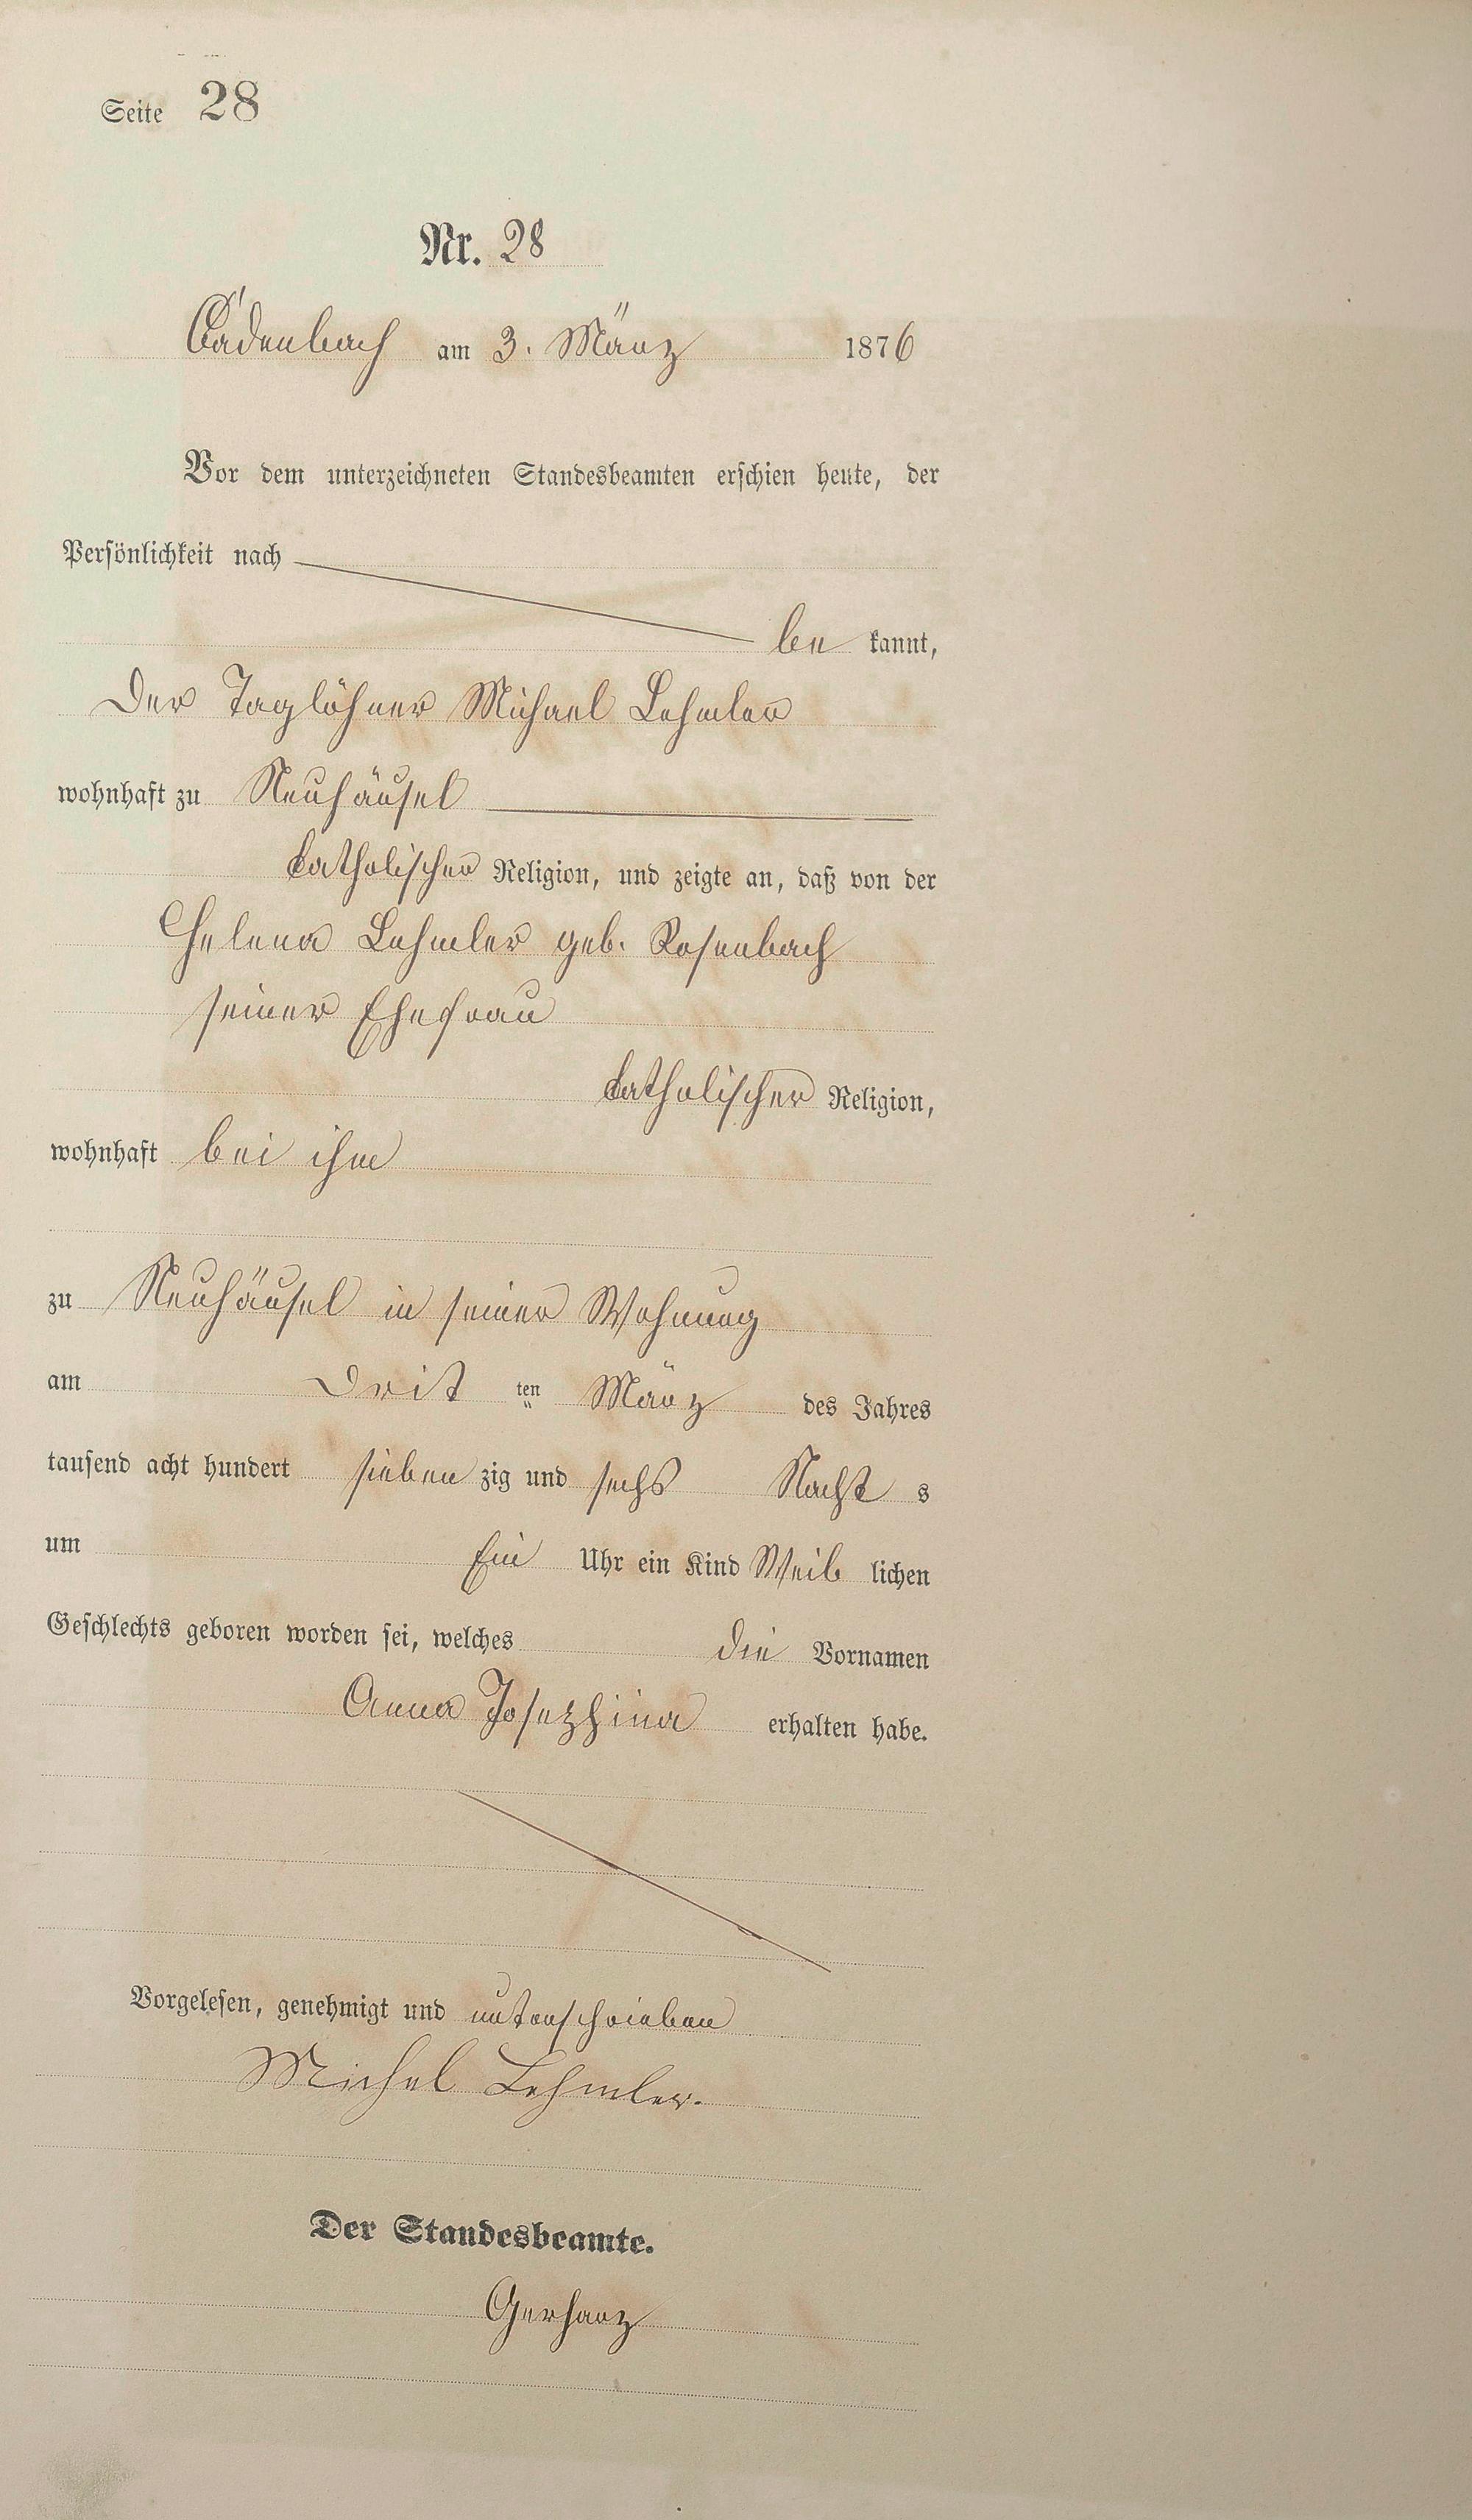 Seite 28
Nr. 28
Cadenbach am 3. März 1876
Vor dem unterzeichneten Standesbeamten erschien heute, der
Persönlichkeit nach
be kannt,
Der Taglöhner Michael Lehmler
wohnhaft zu Neuhäusel
katholischer Religion, und zeigte an, daß von der
Helena Lehmler geb. Rosenbach
seiner Ehefrau
katholischer Religion,
wohnhaft bei ihm
zu Neuhäusel in seiner Wohnung
am Drit ten März des Jahres
tausend acht hundert sieben zig und sechs Nacht s
um Ein Uhr ein Kind Weib lichen
Geschlechts geboren worden sei, welches die Vornamen
Anna Josephina erhalten habe.
Vorgelesen, genehmigt und unterschrieben
Michel Lehmler.
Der Standesbeamte.
Gerharz